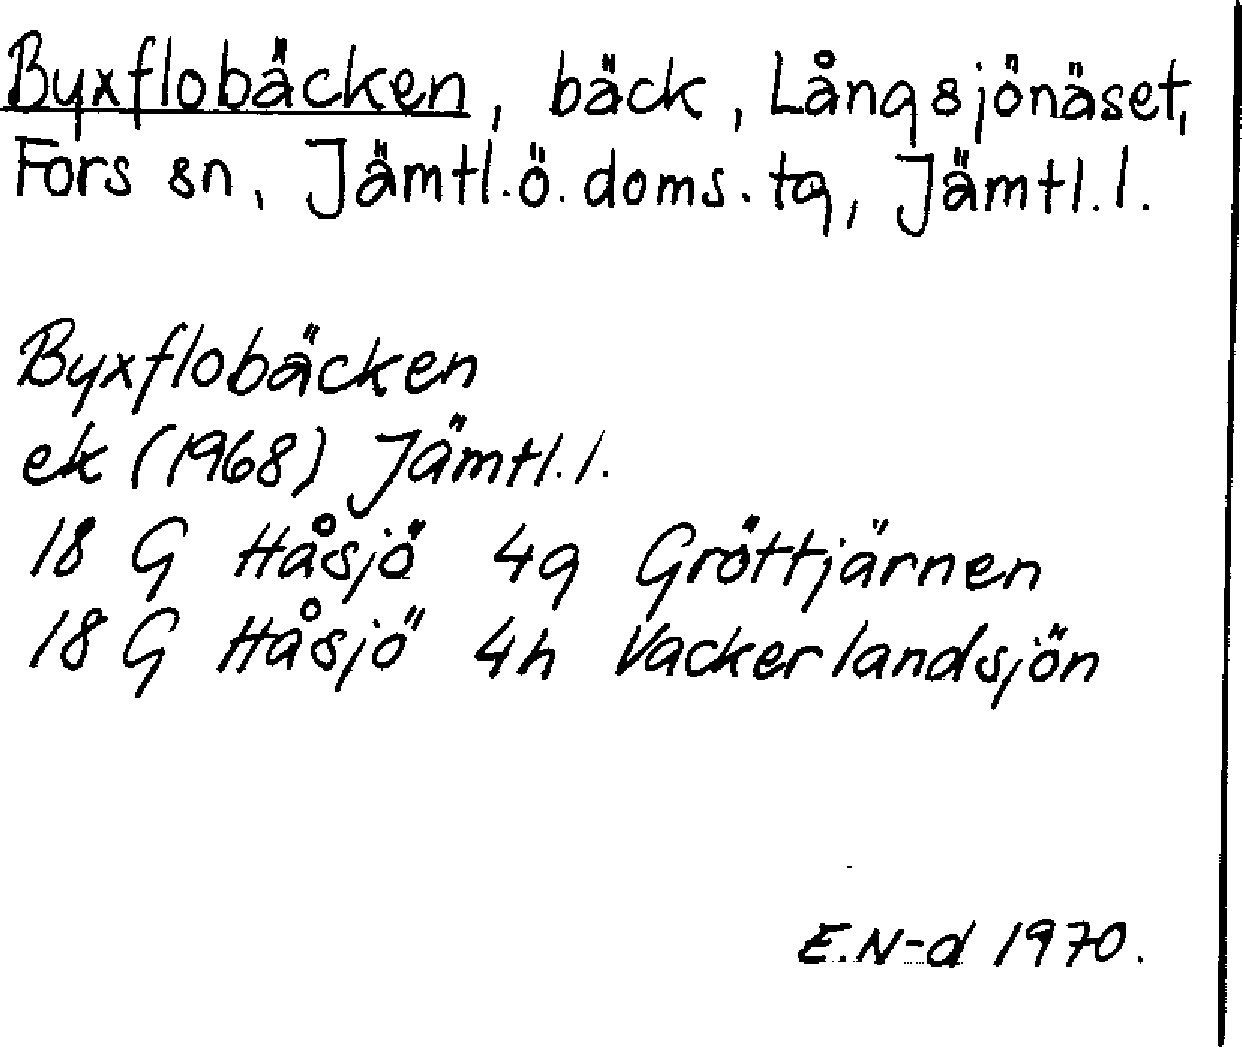 Byxflobäcken, bäck, Långsjönäset,
Fors sn, Jämtl.ö.doms.tg, Jämtl.l.
Byxflobäcken
ek (1968) Jämtl.l.
18 G Håsjö 4g Gröttjärnen
18 G Håsjö 4h Vackerlandsjön
E.N-d 1970.